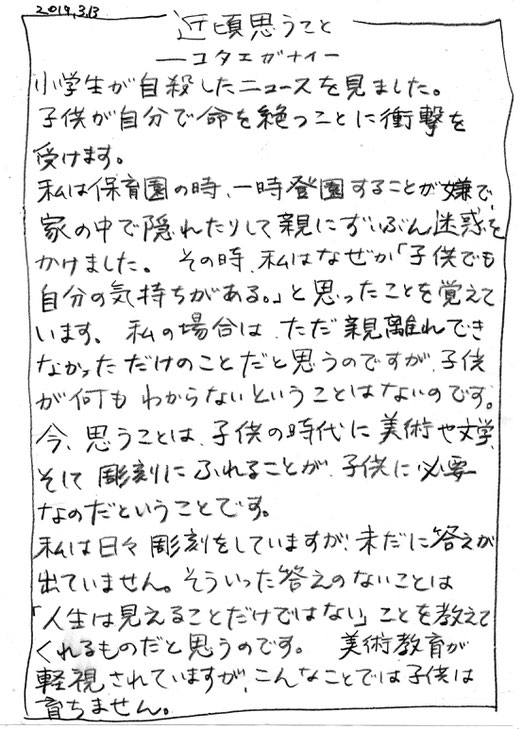 2019,3,13
近頃思うこと
―コタエガナイ―
小学生が自殺したニュースを見ました。
子供が自分で命を絶つことに衝撃を
受けます。
私は保育園の時、一時登園することが嫌で、
家の中で隠れたりして親にずいぶん迷惑を
かけました。その時、私はなぜか「子供でも
自分の気持ちがある。」と思ったことを覚えて
います。私の場合は、ただ親離れでき
なかっただけのことだと思うのですが、子供
が何もわからないということはないのです。
今、思うことは、子供の時代に美術や文学、
そして彫刻にふれることが、子供に必要
なのだということです。
私は日々彫刻をしていますが、未だに答えが
出ていません。そういった答えのないことは
「人生は見えることだけではない」ことを教えて
くれるものだと思うのです。 美術教育が
軽視されていますが、こんなことでは子供は
育ちません。